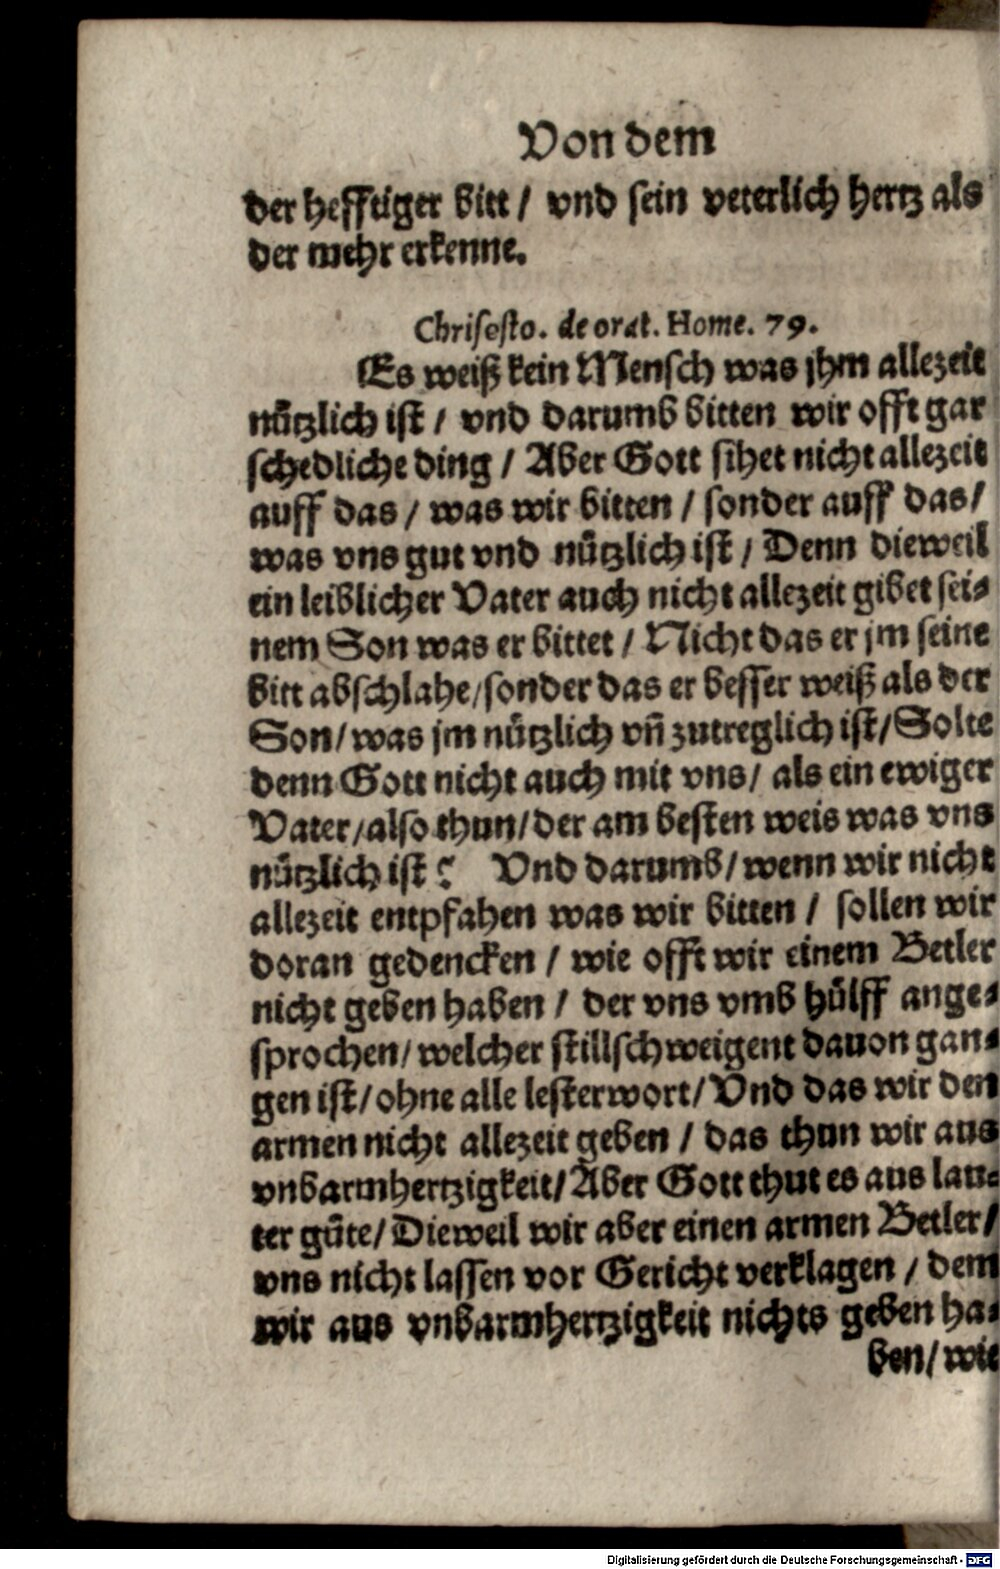 Von dem
der hefftiger bitt / vnd sein veterlich hertz als
der mehr erkenne.
Chrisosto. de orat. Home. 79.
Es weiß kein Mensch was jhm allezeit
nützlich ist / vnd darumb bitten wir offt gar
schedliche ding / Aber Gott sihet nicht allezeit
auff das / was wir bitten / sonder auff das /
was vns gut vnd nützlich ist / Denn dieweil
ein leiblicher Vater auch nicht allezeit gibet sei-
nem Son was er bittet / Nicht das er jm seine
bitt abschlahe / sonder das er besser weiß als der
Son / was jm nützlich vñ zutreglich ist / Solte
denn Gott nicht auch mit vns / als ein ewiger
Vater / also thun / der am besten weis was vns
nützlich ist? Vnd darumb / wenn wir nicht
allezeit entpfahen was wir bitten / sollen wir
doran gedencken / wie offt wir einem Betler
nicht geben haben / der vns vmb hülff ange-
sprochen / welcher stillschweigent dauon gan-
gen ist / ohne alle lesterwort / Vnd das wir den
armen nicht allezeit geben / das thun wir aus
vnbarmhertzigkeit / Aber Gott thut es aus lau-
ter güte / Dieweil wir aber einen armen Betler /
vns nicht lassen vor Gericht verklagen / dem
wir aus vnbarmhertzigkeit nichts geben ha-
ben / wie
Digitalisierung gefördert durch die Deutsche Forschungsgemeinschaft - DFG